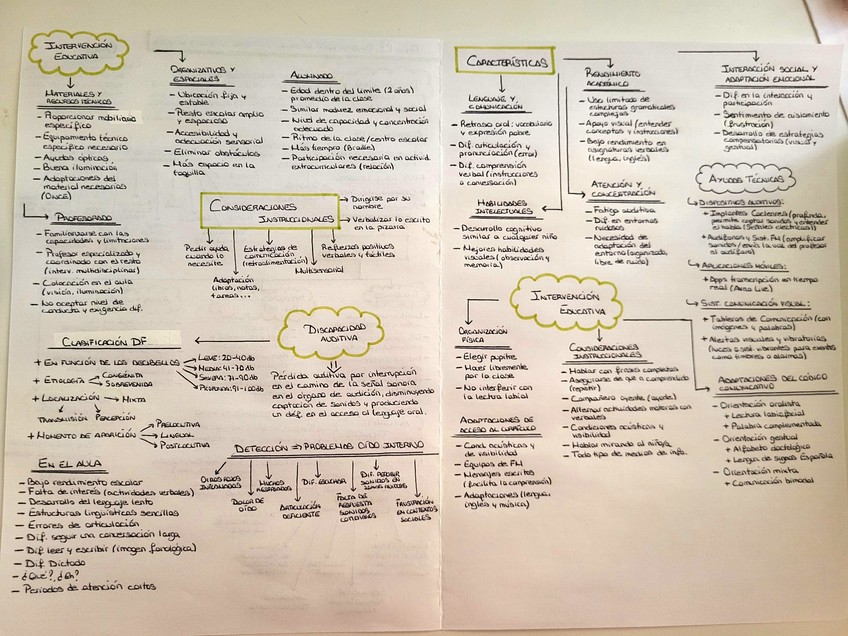 INTERVENCIÓN
EDUCATIVA
MATERIALES Y
RECURSOS TÉCNICOS
- Proporcionar mobiliario
específico
- Equipamiento técnico
específico necesario
- Ayudas ópticas
- Buena iluminación
- Adaptaciones del
material necesarias
(ONCE)
PROFESORADO
- Familiarizarse con las
capacidades y limitaciones
- Profesor especializado y
coordinado con el resto
(interv. multidisciplinar)
- Colocación en el aula
(visión, iluminación)
- No aceptar nivel de
conducta y exigencia dif.
ORGANIZATIVOS Y
ESPACIALES
- Ubicación fija y
estable
- Puesto escolar amplio
y espacioso
- Accesibilidad y
adecuación sensorial
- Eliminar obstáculos
- Más espacio en la
taquilla
ALUMNADO
- Edad dentro del límite (2 años)
promedio de la clase
- Similar madurez emocional y social
- Nivel de capacidad y concentración
adecuado
- Ritmo de la clase/centro escolar
- Más tiempo (Braille)
- Participación necesaria en activid.
extracurriculares (relación)
CONSIDERACIONES
INSTRUCCIONALES
Dirigirse por su
nombre
Verbalizar lo escrito
en la pizarra
Pedir ayuda
cuando lo
necesite
Adaptación
libros, notas,
tareas...
Estrategias de
comunicación
(retroalimentación)
Multisensorial
Refuerzos positivos
verbales y táctiles
DISCAPACIDAD
AUDITIVA
Pérdida auditiva por interrupción
en el camino de la señal sonora
en el órgano de audición, disminuyendo
captación de sonidos y produciendo
un def. en el acceso al lenguaje oral.
CLASIFICACIÓN DF
+ EN FUNCIÓN DE LOS DECIBELIOS
LEVE: 20-40db
MEDIA: 41-70db
SEVERA: 71-90db
PROFUNDA: 91-100db
+ ETIOLOGÍA
CONGÉNITA
SOBREVENIDA
+ LOCALIZACIÓN
MIXTA
TRANSMISIÓN
PERCEPCIÓN
+ MOMENTO DE APARICIÓN
PRELOCUTIVA
LINGUAL
POSTLOCUTIVA
DETECCIÓN ⇒ PROBLEMAS OÍDO INTERNO
OÍDOS ROJOS
INFLAMADOS
DOLOR DE
OÍDO
MUCHOS
RESFRIADOS
ARTICULACIÓN
DEFICIENTE
DIF. ESCUCHAR
FALTA DE
RESPUESTA
SONIDOS
CONOCIDOS
SONIDOS EN
FRUSTRACIÓN
EN CONTEXTOS
SOCIALES
EN EL AULA
- Bajo rendimiento escolar
- Falta de interés (actividades verbales)
- Desarrollo del lenguaje lento
- Estructuras lingüísticas sencillas
- Errores de articulación
- Dif. seguir una conversación larga
- Dif. leer y escribir (imagen fonológica)
- Dif. Dictado
- ¿Qué?, ¿Eh?
- Periodos de atención cortos
CARACTERÍSTICAS
LENGUAJE Y
COMUNICACIÓN
- Retraso oral: vocabulario
y expresión pobre
- Dif. articulación y
pronunciación (error)
- Dif. comprensión
verbal (instrucciones
o conversación)
HABILIDADES
INTELECTUALES
- Desarrollo cognitivo
similar a cualquier niño
- Mejores habilidades
visuales (observación y
memoria)
RENDIMIENTO
ACADÉMICO
- Uso limitado de
estructuras gramaticales
complejas
- Apoyo visual (entender
conceptos y instrucciones)
- Bajo rendimiento en
asignaturas verbales
(lengua, inglés)
ATENCIÓN Y
CONCENTRACIÓN
- Fatiga auditiva
- Dif. en entornos
ruidosos
- Necesidad de
adaptación del
entorno (organizado,
libre de ruido)
INTERACCIÓN SOCIAL Y
ADAPTACIÓN EMOCIONAL
- Dif. en la interacción y
participación
- Sentimiento de aislamiento
(frustración)
- Desarrollo de estrategias
compensatorias (visual y
gestual)
AYUDAS TÉCNICAS
DISPOSITIVOS AUDITIVOS:
+ Implantes Cocleares (profunda,
permite captar sonidos y entender
el habla (señales eléctricas))
+ Audífonos y Sist. FM (amplificar
sonidos / envía la voz del profesor
al audífono)
APLICACIONES MÓVILES:
+ Apps transcripción en tiempo
real (Ava Live)
SIST. COMUNICACIÓN VISUAL:
+ Tableros de Comunicación (con
imágenes y palabras)
+ Alertas visuales y vibratorias
(luces o sist. vibrantes para eventos
como timbres o alarmas)
INTERVENCIÓN
EDUCATIVA
ORGANIZACIÓN
FÍSICA
- Elegir pupitre
- Mover libremente
por la clase
- No interferir con
la lectura labial
ADAPTACIONES DE
ACCESO AL CURRÍCULO
- Cond. acústicas y
de visibilidad
- Equipos de FM
- Mensajes escritos
(facilita la comprensión)
- Adaptaciones (lengua,
inglés y música)
CONSIDERACIONES
INSTRUCCIONALES
- Hablar con frases completas
- Asegurarse de que a comprendido
(repetir)
- Compañero oyente (ayude)
- Alternar actividades motoras con
verbales
- Condiciones acústicas y
visibilidad
- Hablar mirando al niño/a
- Todo tipo de medios de info.
ADAPTACIONES DEL CÓDIGO
COMUNICATIVO
- Orientación oralista
+ Lectura labiofacial
+ Palabra complementada
- Orientación gestual
+ Alfabeto dactilológico
+ Lengua de signos Española
- Orientación mixta
+ Comunicación bimodal